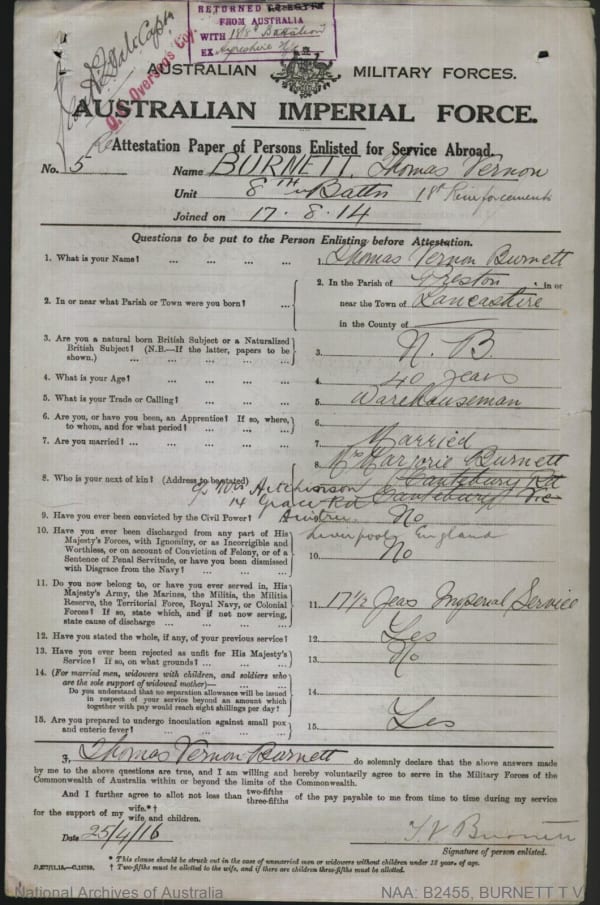 RETURNED TO
FROM AUSTRALIA
WITH 18/8th Battalion
EX Ayrshire
AUSTRALIAN MILITARY FORCES.
AUSTRALIAN IMPERIAL FORCE.
Re Attestation Paper of Persons Enlisted for Service Abroad.
No. 5 Name BURNETT. Thomas Vernon
Unit 8TH Battn 18th Reinforcements
Joined on 17.8.14
Questions to be put to the Person Enlisting before Attestation.
1. What is your Name? ... ... ... ... 1. Thomas Vernon Burnett
2. In or near what Parish or Town were you born? ...
2. In the Parish of Preston in or
near the Town of Lancashire
in the County of
3. Are you a natural born British Subject or a Naturalized
British Subject? (N.B.—If the latter, papers to be
shown.) ... ... ... ... ... 3. N. B.
4. What is your Age? ... ... ... ... 4. 40 years
5. What is your Trade or Calling? ... ... ... 5. Warehouseman
6. Are you, or have you been, an Apprentice? If so, where,
to whom, and for what period? ... ... ... 6.
7. Are you married? ... ... ... ... 7. Married
8. Who is your next of kin? (Address to be stated) 8. Mrs Marjorie Burnett
c/o Mrs Aitchinson Cantebury Rd
14 Grace Rd Cantebury Vic
Aintree
9. Have you ever been convicted by the Civil Power? 9. No
Liverpool England
10. Have you ever been discharged from any part of His
Majesty's Forces, with Ignominy, or as Incorrigible and
Worthless, or on account of Conviction of Felony, or of a
Sentence of Penal Servitude, or have you been dismissed
with Disgrace from the Navy? ... ... ... 10. No
11. Do you now belong to, or have you ever served in, His
Majesty's Army, the Marines, the Militia, the Militia
Reserve, the Territorial Force, Royal Navy, or Colonial
Forces? If so, state which, and if not now serving,
state cause of discharge ... ... ... 11. 17½ Yeas Imperial Service
12. Have you stated the whole, if any, of your previous service? 12. Yes
13. Have you ever been rejected as unfit for His Majesty's
Service? If so, on what grounds? ... ... ... 13. No
14. (For married men, widowers with children, and soldiers who
are the sole support of widowed mother)—
Do you understand that no separation allowance will be issued
in respect of your service beyond an amount which
together with pay would reach eight shillings per day? 14.
15. Are you prepared to undergo inoculation against small pox
and enteric fever? ... ... ... ... 15. Yes
I, Thomas Vernon Burnett do solemnly declare that the above answers made
by me to the above questions are true, and I am willing and hereby voluntarily agree to serve in the Military Forces of the
Commonwealth of Australia within or beyond the limits of the Commonwealth.
And I further agree to allot not less than two-fifths three-fifths of the pay payable to me from time to time during my service
for the support of my wife.*† wife and children.
Date 25/4/16 T V Burnett
Signature of person enlisted.
* This clause should be struck out in the case of unmarried men or widowers without children under 18 years of age.
† Two-fifths must be allotted to the wife, and if there are children three-fifths must be allotted.
National Archives of Australia NAA: B2455, BURNETT T V